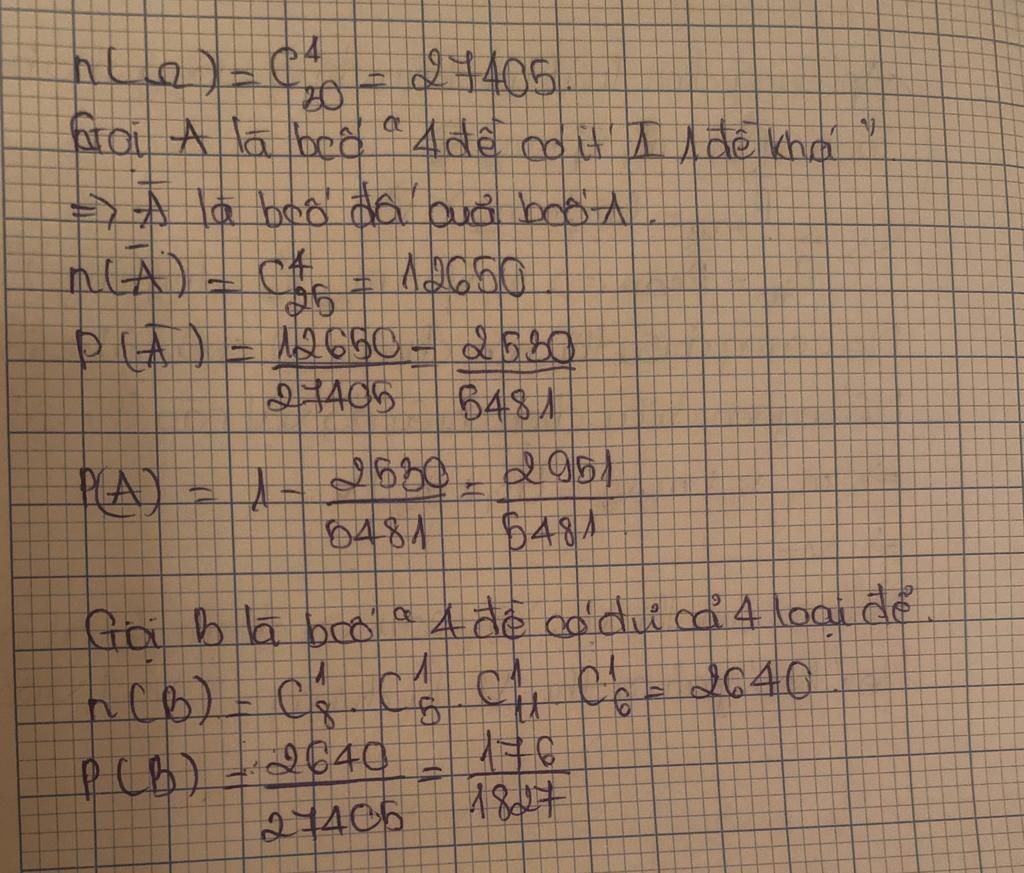 n(Ω) = C⁴₃₀ = 27405.
Gọi A là bcố "4 đề có ít I 1 đề khó"
=> Ā là bcố đối của bcố A.
n(Ā) = C⁴₂₅ = 12650.
P(Ā) = 12650/27405 = 2530/5481
P(A) = 1 - 2530/5481 = 2951/5481
Gọi B là bcố "4 đề có đủ cả 4 loại đề.
n(B) = C¹₈ . C¹₅ . C¹₁₁ . C¹₆ = 2640.
P(B) = 2640/27405 = 176/1827